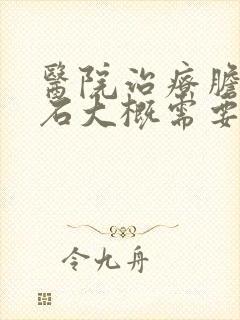 醫院治療膽
石大概需要
令九舟